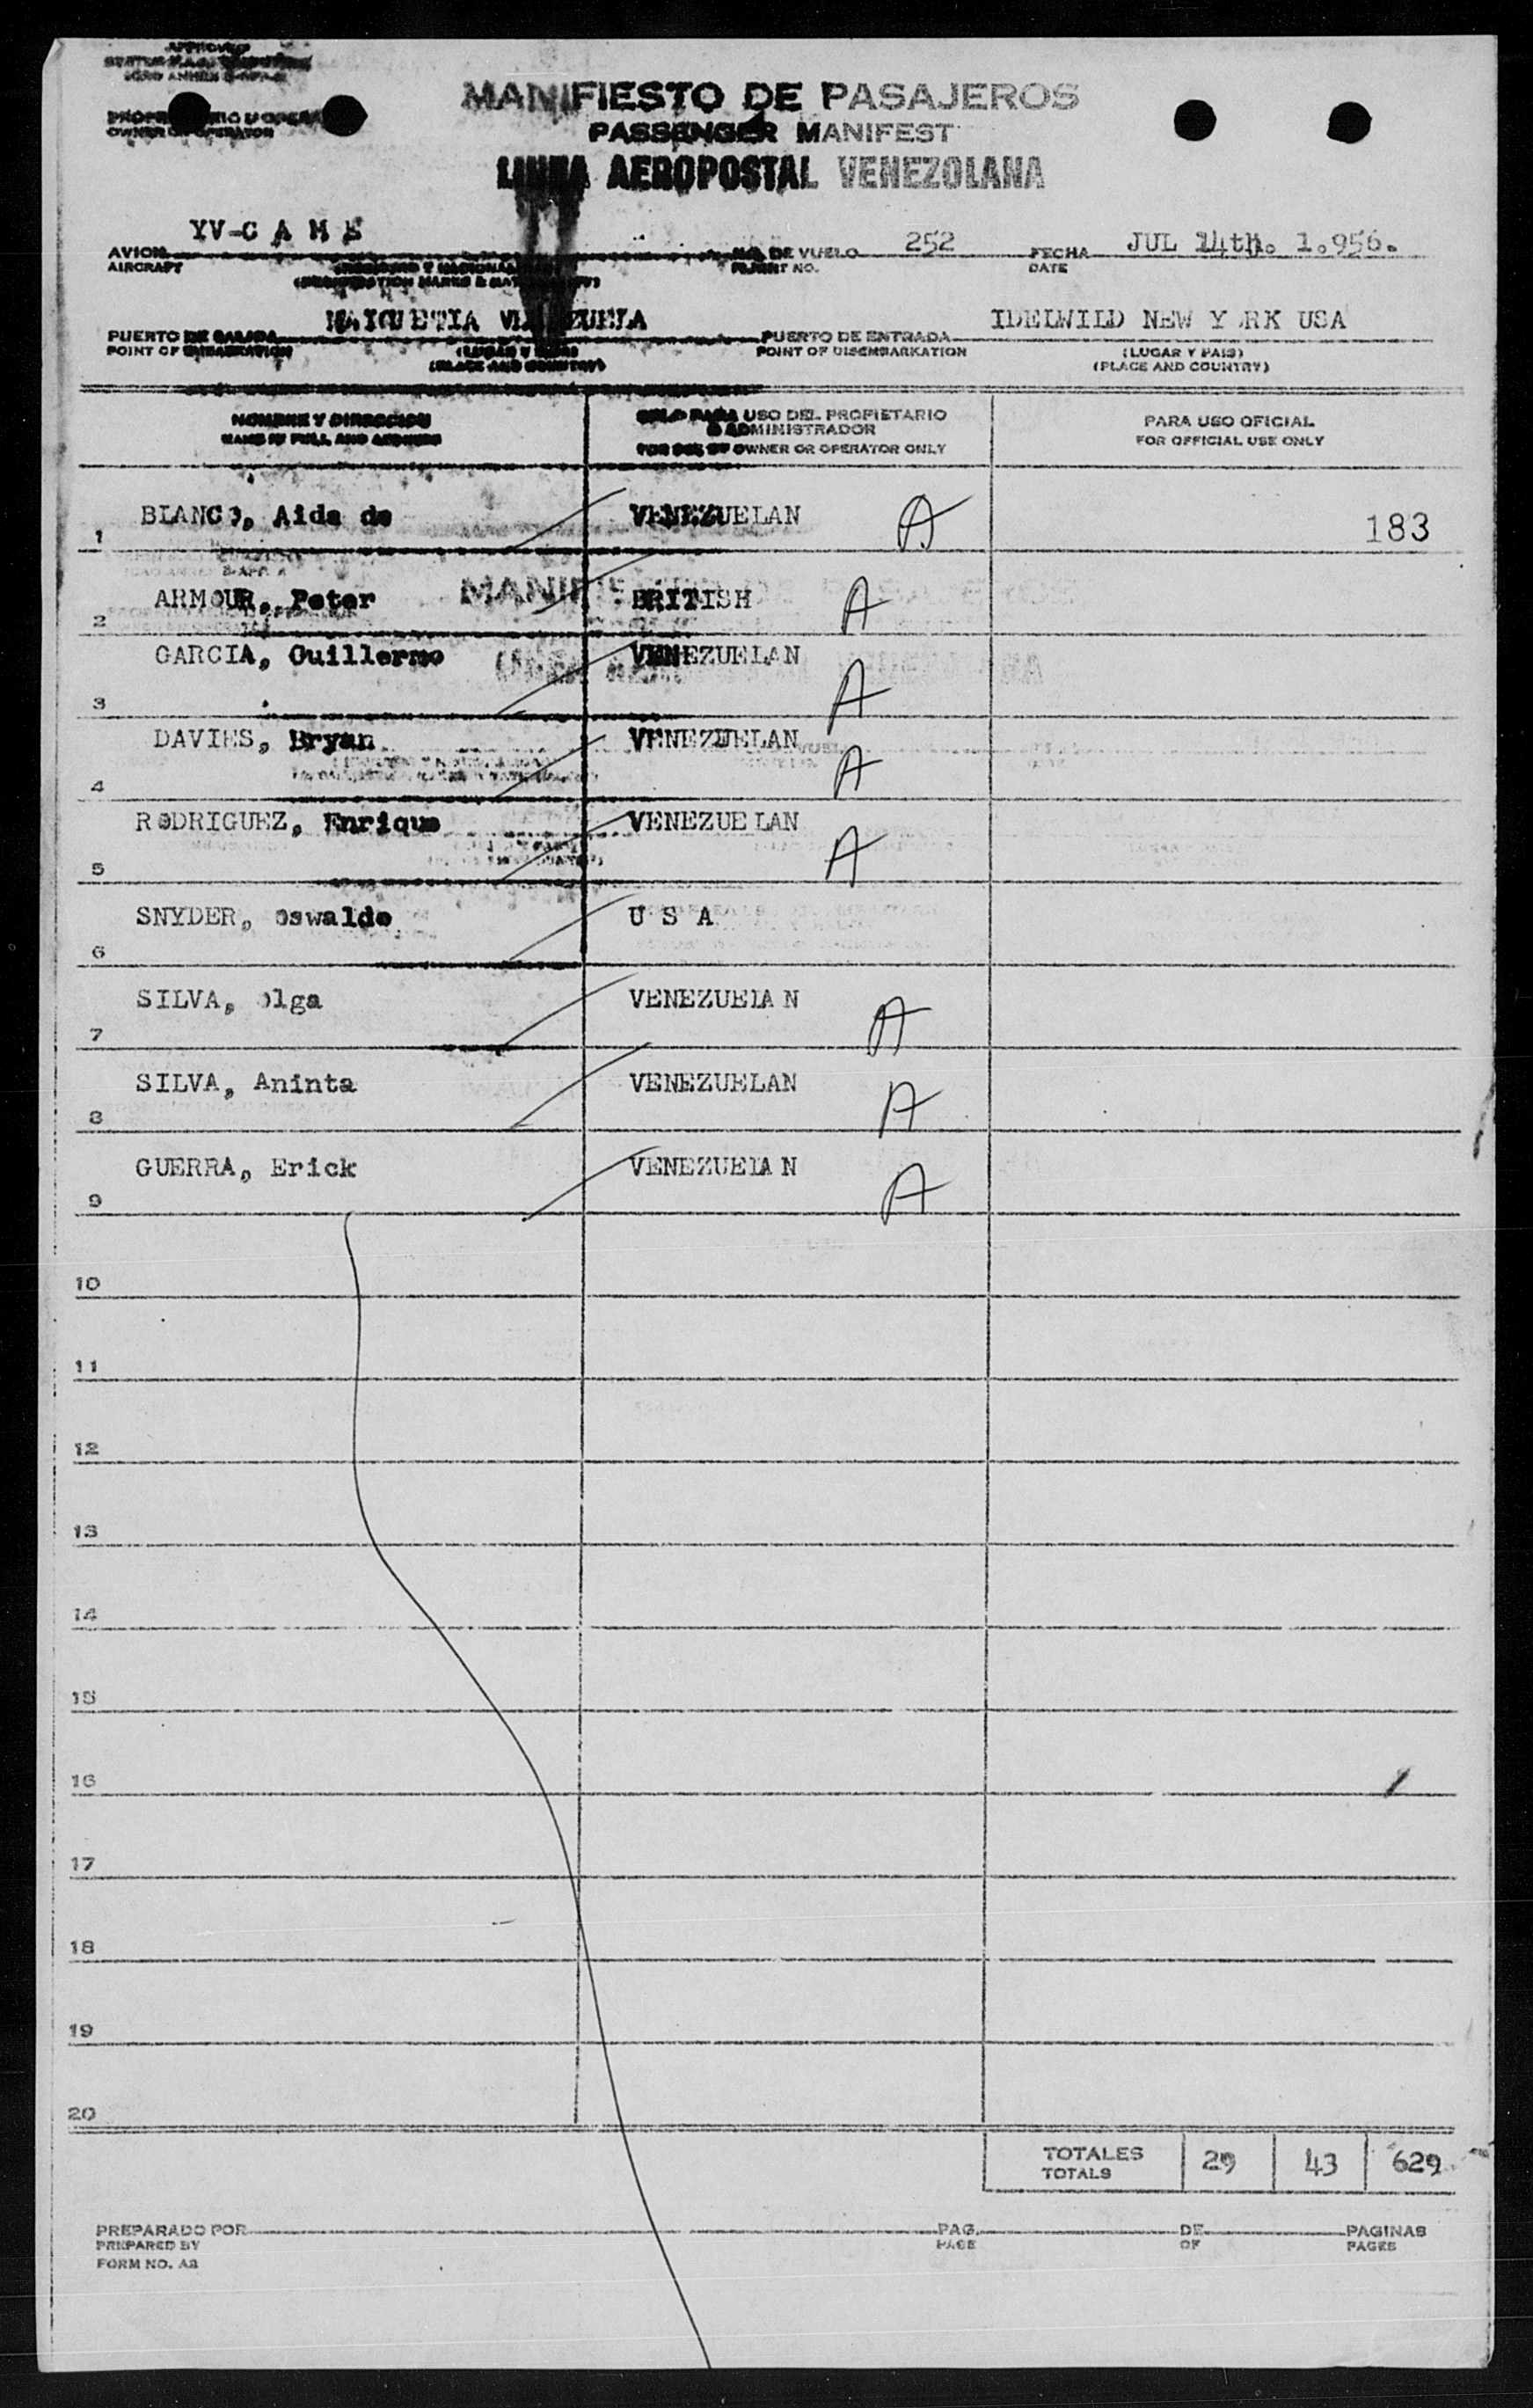 APPROVED
ICAO ANNEX
OWNER OR OPERATOR
MANIFIESTO DE PASAJEROS
PASSENGER MANIFEST
LINEA AEROPOSTAL VENEZOLANA
YV-C A M S 252 JUL 14th. 1.956.
AVION NO. DE VUELO FECHA
AIRCRAFT FLIGHT NO. DATE
(REGISTRATION MARKS & NATIONALITY)
MAIQUETIA VENEZUELA IDELWILD NEW Y RK USA
PUERTO DE SALIDA PUERTO DE ENTRADA
POINT OF EMBARKATION (LUGAR Y PAIS) POINT OF DISEMBARKATION (LUGAR Y PAIS)
(PLACE AND COUNTRY) (PLACE AND COUNTRY)
NOMBRE Y DIRECCION SOLO PARA USO DEL PROPIETARIO PARA USO OFICIAL
O ADMINISTRADOR
NAME IN FULL AND ADDRESS FOR USE OF OWNER OR OPERATOR ONLY FOR OFFICIAL USE ONLY
1 BLANCO, Aida de VENEZUELAN A 183
2 ARMOUR, Peter BRITISH A
3 GARCIA, Guillermo VENEZUELAN A
4 DAVIES, Bryan VENEZUELAN A
5 RODRIGUEZ, Enrique VENEZUELAN A
6 SNYDER, Oswaldo U S A
7 SILVA, Olga VENEZUELA N A
8 SILVA, Aninta VENEZUELAN A
9 GUERRA, Erick VENEZUELA N A
10
11
12
13
14
15
16
17
18
19
20
TOTALES 29 43 629
TOTALS
PREPARADO POR PAG. DE PAGINAS
PREPARED BY PAGE OF PAGES
FORM NO. A3